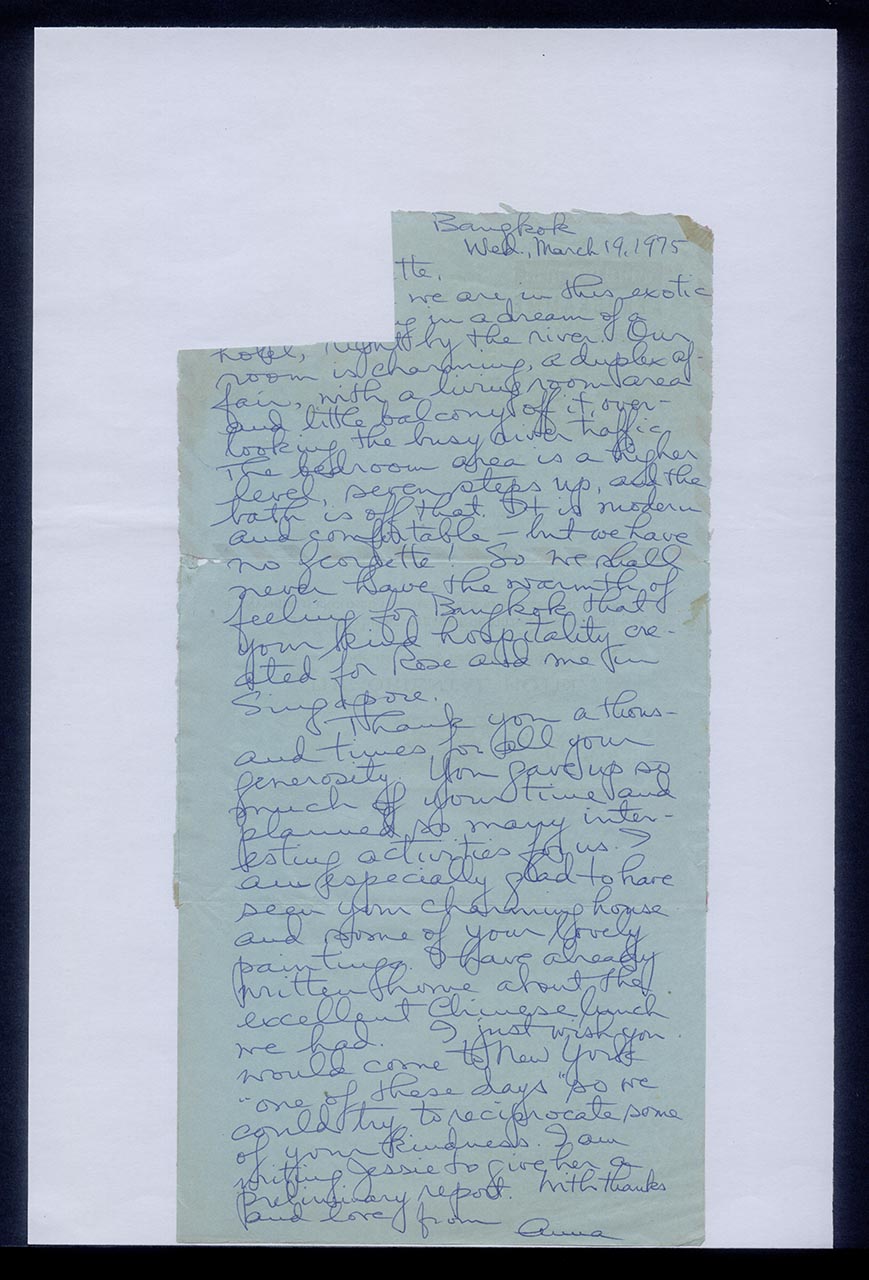 Bangkok
Wed., March 19, 1975
tte,
we are in this exotic
g in a dream of a
hotel, right by the river. Our
room is charming, a duplex af-
fair, with a living room area
and little balcony off it, over-
looking the busy river traffic.
The bedroom area is a higher
level, seven steps up, and the
bath is off that. It is modern
and comfortable – but we have
no Georgette! So we shall
never have the warmth of
feeling for Bangkok that
your kind hospitality cre-
ated for Rose and me in
Singapore.
Thank you a thous-
and times for all your
generosity. You gave up so
much of your time and
planned so many inter-
esting activities for us. I
am especially glad to have
seen your charming house
and some of your lovely
paintings. I have already
written home about the
excellent Chinese lunch
we had. I just wish you
would come to New York
"one of these days" so we
could try to reciprocate some
of your kindness. I am
writing Jessie to give her a
preliminary report. With thanks
and love from
Anna